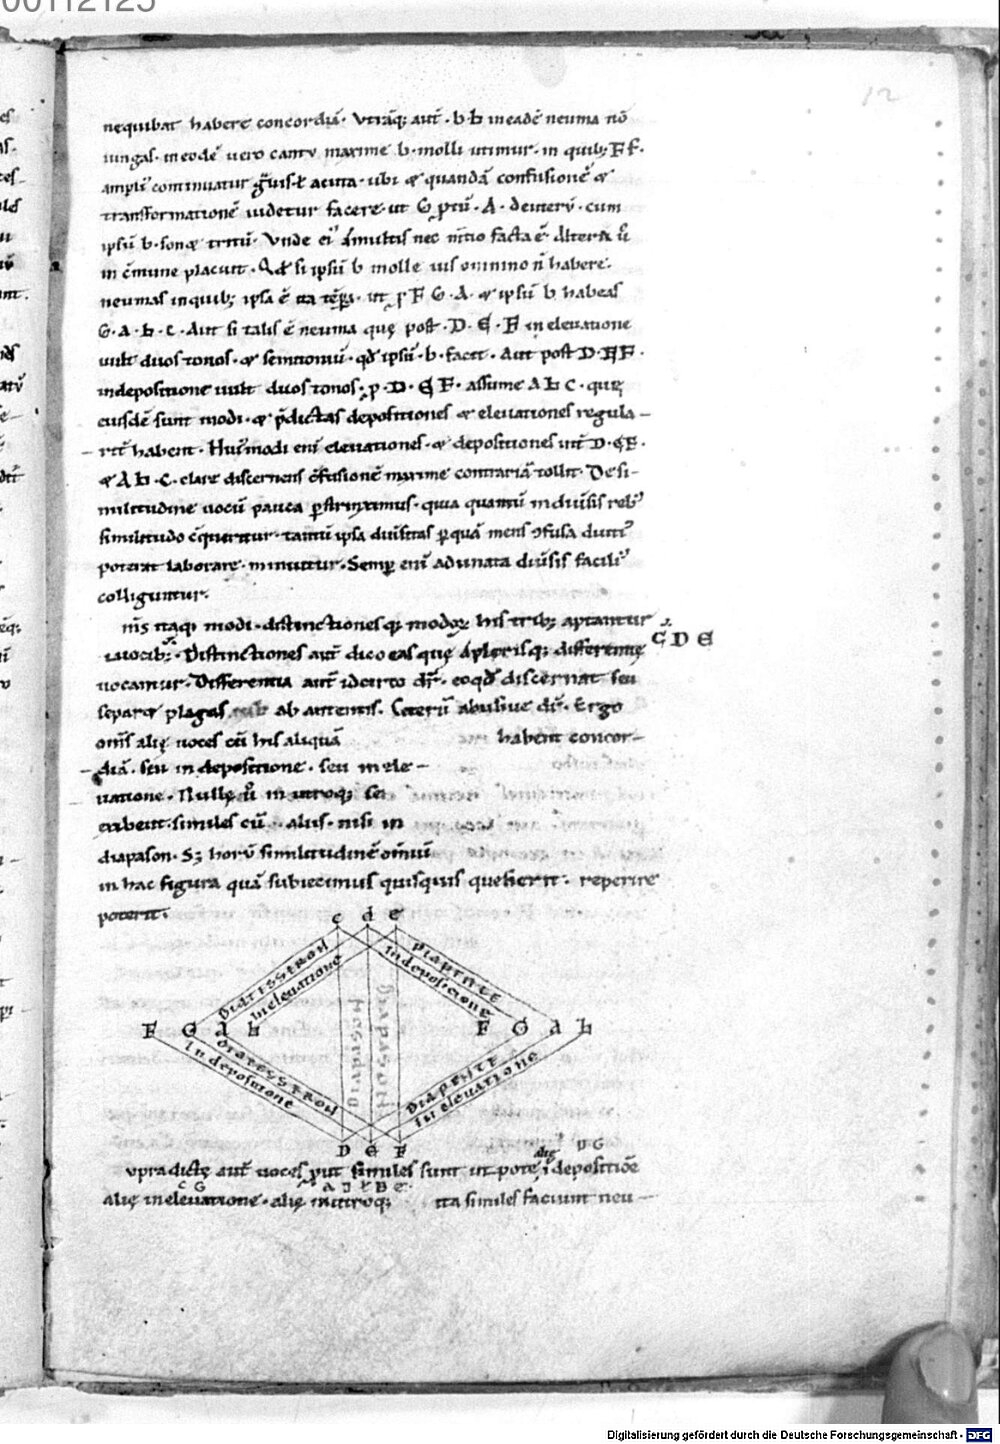 00112125
12
nequibat habere concordiā. Vtrāq; aut̄. b ♮ in eadē neuma nō
iungas. in eodē uero cantu maxime b. molli utimur. in quib; F f.
ampli᾽ continuatur ḡuis ł acuta. ubi & quandā confusionē &
transformationē uidetur facere. ut G ꝓtū. A. deuterū. cum
ipsū b. sonet tritū. Vnde ei᾽ a multis nec m̄tio facta ē. Altera ū
in c̄mune placuit. Qd̄ si ipsū b molle uis omnino n̄ habere.
neumas in quib; ipsa ē ita tēpa. ut ꝓ F G. A. & ipsū b habeas
G. a. ♮. c. Aut si talis ē neuma quę post. D. E. F in eleuatione
uult duos tonos. & semitoniū. qd̄ ipsū. b. facit. Aut post D. E F.
in depositione uult duos tonos. ꝓ. D. E F. assume A ♮ C. quę
eiusdē sunt modi. & p̄dictas depositiones & eleuationes regula–
rit̄ habent. Hui᾽modi eni eleuationes. & depositiones int̄ D. E F.
& A ♮. C. clare discernens c̄fusionē maxime contrariā tollit. De si–
militudine uocū pauca pstrinximus. quia quantū in diuisis reb᾽
similitudo c̄quiritur. tantū ipsa diūsitas p quā mens ɔfusa diuti᾽
poterat laborare. minuitur. Semp eni adunata diūsis facili᾽
colliguntur.
m̄s itaq; modi. distinctionesq; modoꝝ his trib; aptantur
uocib;. Distinctiones aut̄ dico eas quę a plerisq; differentię C D E
uocantur. Differentia aut̄ idcirco dr̄. eo qd̄ discernat seu
separet plagas ab autentis. Ceterū abusiue dr̄. Ergo
om̄s alię uoces cū his aliquā habent concor–
diā. seu in depositione. seu in ele–
uatione. Nullę ū in utroq; se
exhibent similes cū aliis. nisi in
diapason. S; horū similitudinē omiū
in hac figura quā subiecimus quisquis quesierit. reperire
poterit.
c d e
DIATESSERON
In eleuatione
DIAPENTE
In deposicione
F G a ♮
F G a ♮
DIAPASON
DIAPASON
DIATESSERON
In deposicione
DIAPENTE
In eleuatione
D E F
D G
upradictę aut̄ uoces put similes sunt ut pote alię ī depositiōe
C G
alię in eleuatione. alię in utroq; ita similes faciunt neu–
Digitalisierung gefördert durch die Deutsche Forschungsgemeinschaft - DFG